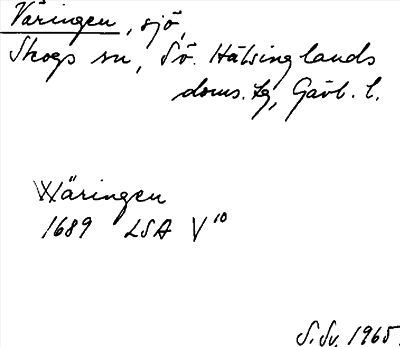 Väringen, sjö,
Skogs sn, Sö. Hälsinglands
doms. tg, Gävl. l.
Wäringen
1689 LSA V¹⁰
S. Sv. 1965.